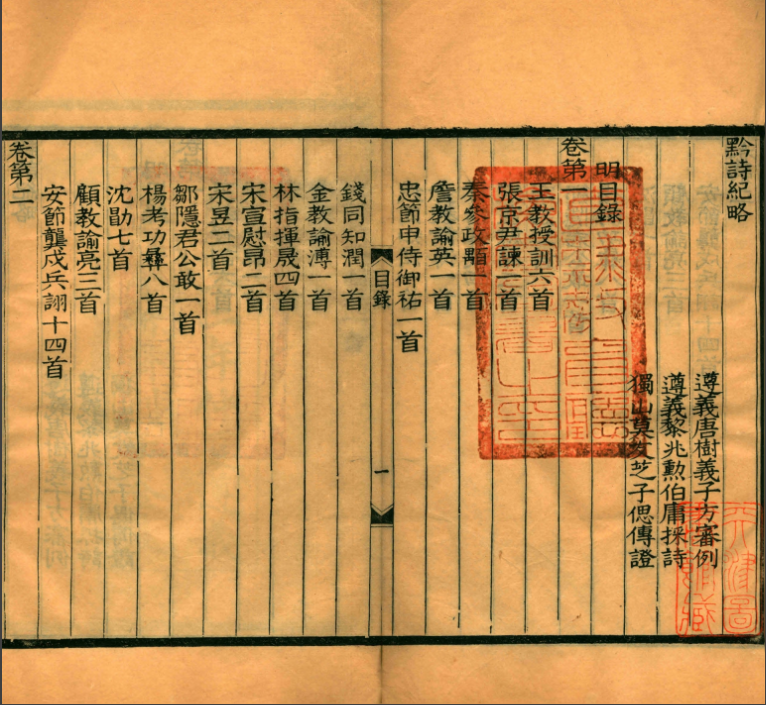 黔詩紀略
遵義唐樹義子方審例
遵義黎兆勲伯庸採詩
獨山莫友芝子偲傳證
明目錄
卷第一
王教授訓六首
張京尹諫一首
秦參政顒一首
詹教諭英一首
忠節申侍御祐一首
目錄
一
錢同知潤一首
金教諭溥一首
林指揮晟四首
宋宣慰昂二首
宋昱二首
鄒隱君公敢一首
楊考功彝八首
沈勖七首
顧教諭亮三首
安節龔戍兵詡十四首
卷第二